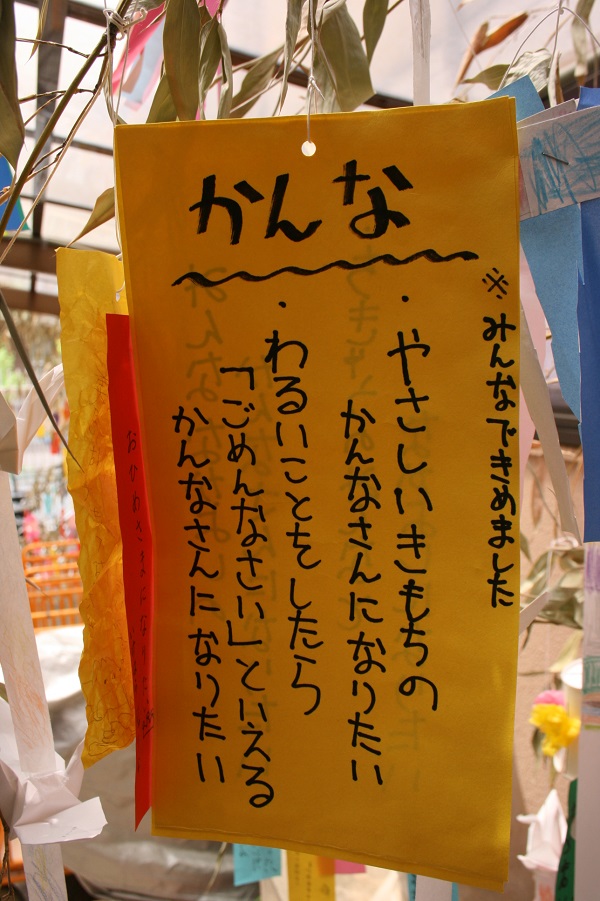 かんな
※みんなできめました
・やさしいきもちの
かんなさんになりたい
・わるいことをしたら
「ごめんなさい」といえる
かんなさんになりたい